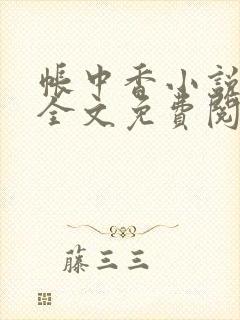 帳中香小說
全文免費閱
藤三三